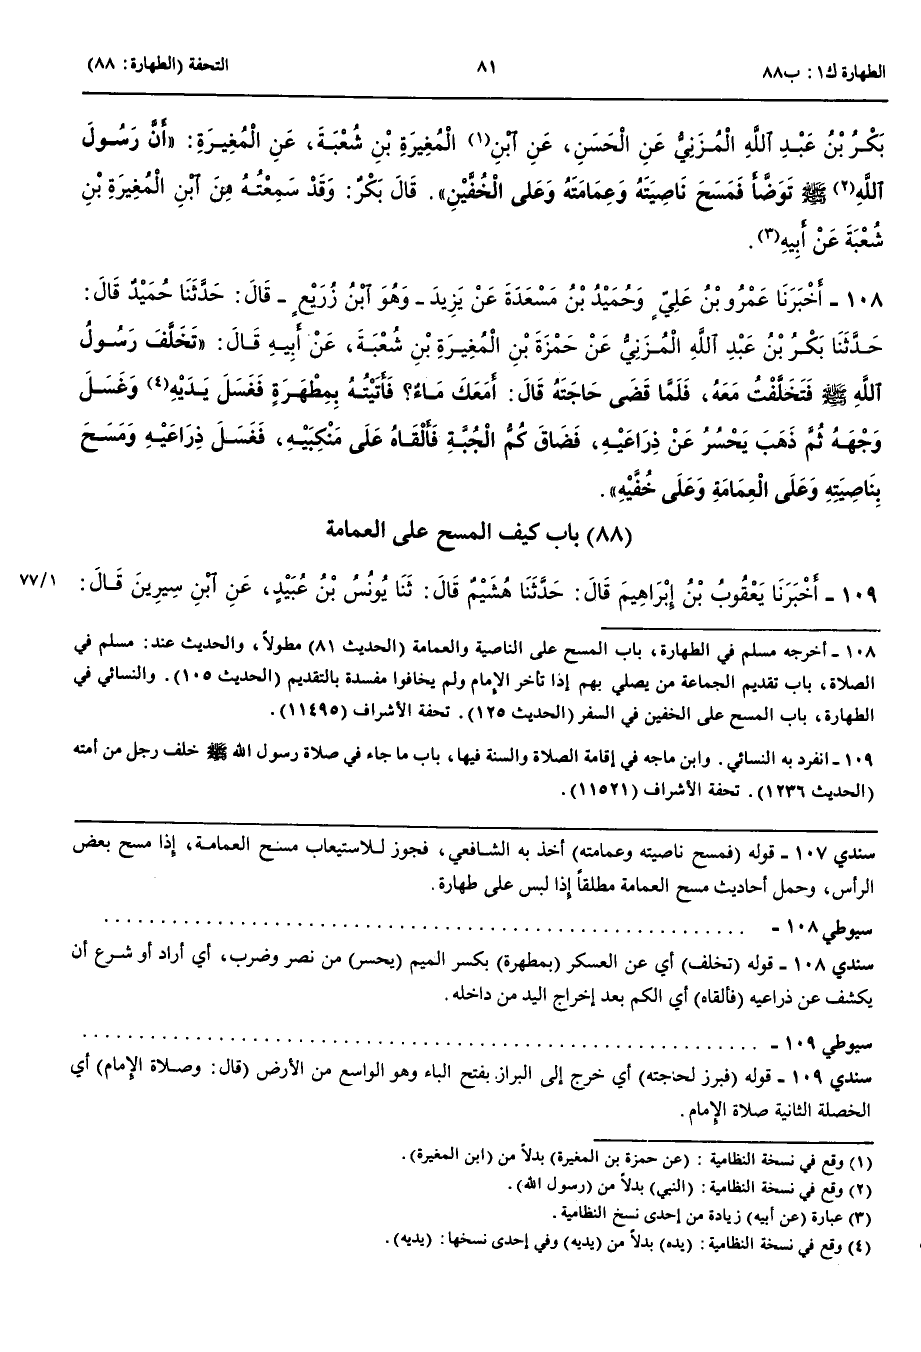 الطهارة ك١: ب٨٨ ٨١ التحفة (الطهارة: ٨٨)
بَكْرُ بْنُ عَبْدِ ٱللَّهِ الْمُزَنِيُّ عَنِ الْحَسَنِ، عَنِ ٱبْنِ(١) الْمُغِيرَةِ بْنِ شُعْبَةَ، عَنِ الْمُغِيرَةِ: «أَنَّ رَسُولَ
ٱللَّهِ(٢) ﷺ تَوَضَّأَ فَمَسَحَ نَاصِيَتَهُ وَعِمَامَتَهُ وَعَلى الْخُفَّيْنِ». قَالَ بَكْرٌ: وَقَدْ سَمِعْتُهُ مِنَ ٱبْنِ الْمُغِيرَةِ بْنِ
شُعْبَةَ عَنْ أَبِيهِ(٣).
١٠٨ - أَخْبَرَنَا عَمْرُو بْنُ عَلِيٍّ وَحُمَيْدُ بْنُ مَسْعَدَةَ عَنْ يَزِيدَ - وَهُوَ ٱبْنُ زُرَيْعٍ - قَالَ: حَدَّثَنَا حُمَيْدٌ قَالَ:
حَدَّثَنَا بَكْرُ بْنُ عَبْدِ ٱللَّهِ الْمُزَنِيُّ عَنْ حَمْزَةَ بْنِ الْمُغِيرَةِ بْنِ شُعْبَةَ، عَنْ أَبِيهِ قَالَ: «تَخَلَّفَ رَسُولُ
ٱللَّهِ ﷺ فَتَخَلَّفْتُ مَعَهُ، فَلَمَّا قَضى حَاجَتَهُ قَالَ: أَمَعَكَ مَاءٌ؟ فَأَتَيْتُهُ بِمِطْهَرَةٍ فَغَسَلَ يَدَيْهِ(٤) وَغَسَلَ
وَجْهَهُ ثُمَّ ذَهَبَ يَحْسُرُ عَنْ ذِرَاعَيْهِ، فَضَاقَ كُمُّ الْجُبَّةِ فَأَلْقَاهُ عَلَى مَنْكِبَيْهِ، فَغَسَلَ ذِرَاعَيْهِ وَمَسَحَ
بِنَاصِيَتِهِ وَعَلَى الْعِمَامَةِ وَعَلَى خُفَّيْهِ».
(٨٨) باب كيف المسح على العمامة
١٠٩ - أَخْبَرَنَا يَعْقُوبُ بْنُ إِبْرَاهِيمَ قَالَ: حَدَّثَنَا هُشَيْمٌ قَالَ: ثَنَا يُونُسُ بْنُ عُبَيْدٍ، عَنِ ٱبْنِ سِيرِينَ قَالَ: ٧٧/١
١٠٨ - أخرجه مسلم في الطهارة، باب المسح على الناصية والعمامة (الحديث ٨١) مطولاً، والحديث عند: مسلم في
الصلاة، باب تقديم الجماعة من يصلي بهم إذا تأخر الإمام ولم يخافوا مفسدة بالتقديم (الحديث ١٠٥). والنسائي في
الطهارة، باب المسح على الخفين في السفر (الحديث ١٢٥). تحفة الأشراف (١١٤٩٥).
١٠٩ - انفرد به النسائي. وابن ماجه في إقامة الصلاة والسنة فيها، باب ما جاء في صلاة رسول الله ﷺ خلف رجل من أمته
(الحديث ١٢٣٦). تحفة الأشراف (١١٥٢١).
سندي ١٠٧ - قوله (فمسح ناصيته وعمامته) أخذ به الشافعي، فجوز للاستيعاب مسح العمامة، إذا مسح بعض
الرأس، وحمل أحاديث مسح العمامة مطلقاً إذا لبس على طهارة.
سيوطي ١٠٨ - ........................................................
سندي ١٠٨ - قوله (تخلف) أي عن العسكر (بمطهرة) بكسر الميم (يحسر) من نصر وضرب، أي أراد أو شرع أن
يكشف عن ذراعيه (فألقاه) أي الكم بعد إخراج اليد من داخله.
سيوطي ١٠٩ - ........................................................
سندي ١٠٩ - قوله (فبرز لحاجته) أي خرج إلى البراز بفتح الباء وهو الواسع من الأرض (قال: وصلاة الإمام) أي
الخصلة الثانية صلاة الإمام.
(١) وقع في نسخة النظامية : (عن حمزة بن المغيرة) بدلاً من (ابن المغيرة).
(٢) وقع في نسخة النظامية: (النبي) بدلاً من (رسول الله).
(٣) عبارة (عن أبيه) زيادة من إحدى نسخ النظامية.
(٤) وقع في نسخة النظامية: (يده) بدلاً من (يديه) وفي إحدى نسخها: (يديه).